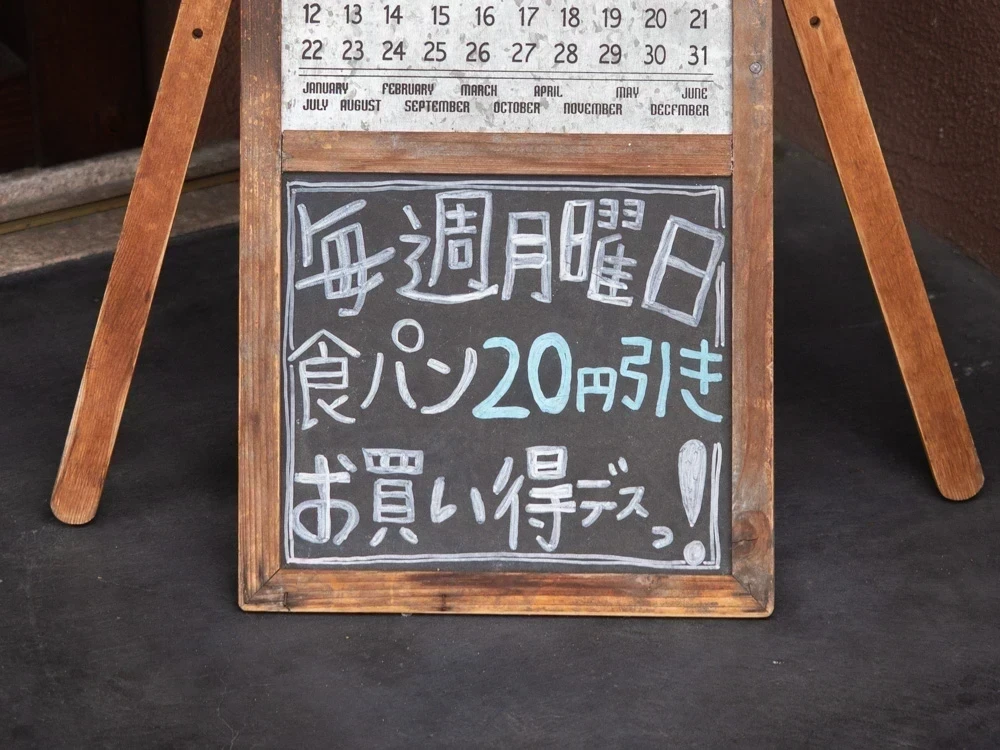 12 13 14 15 16 17 18 19 20 21
22 23 24 25 26 27 28 29 30 31
JANUARY FEBRUARY MARCH APRIL MAY JUNE
JULY AUGUST SEPTEMBER OCTOBER NOVEMBER DECFMBER
毎週月曜日
食パン20円引き
お買い得デスっ!